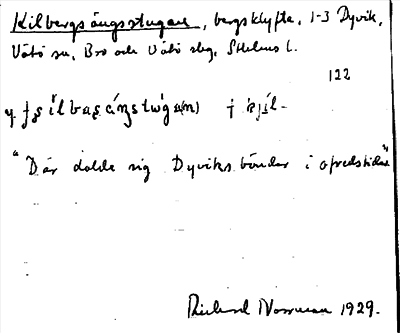 Kilbergsängsstugan, bergsklyfta, 1-3 Dyvik,
Vätö sn, Bro och Vätö skg, Sthlms l.
122
"Där dolde sig Dyviks bönder i ofredstider"
Rickard Norrman 1929.